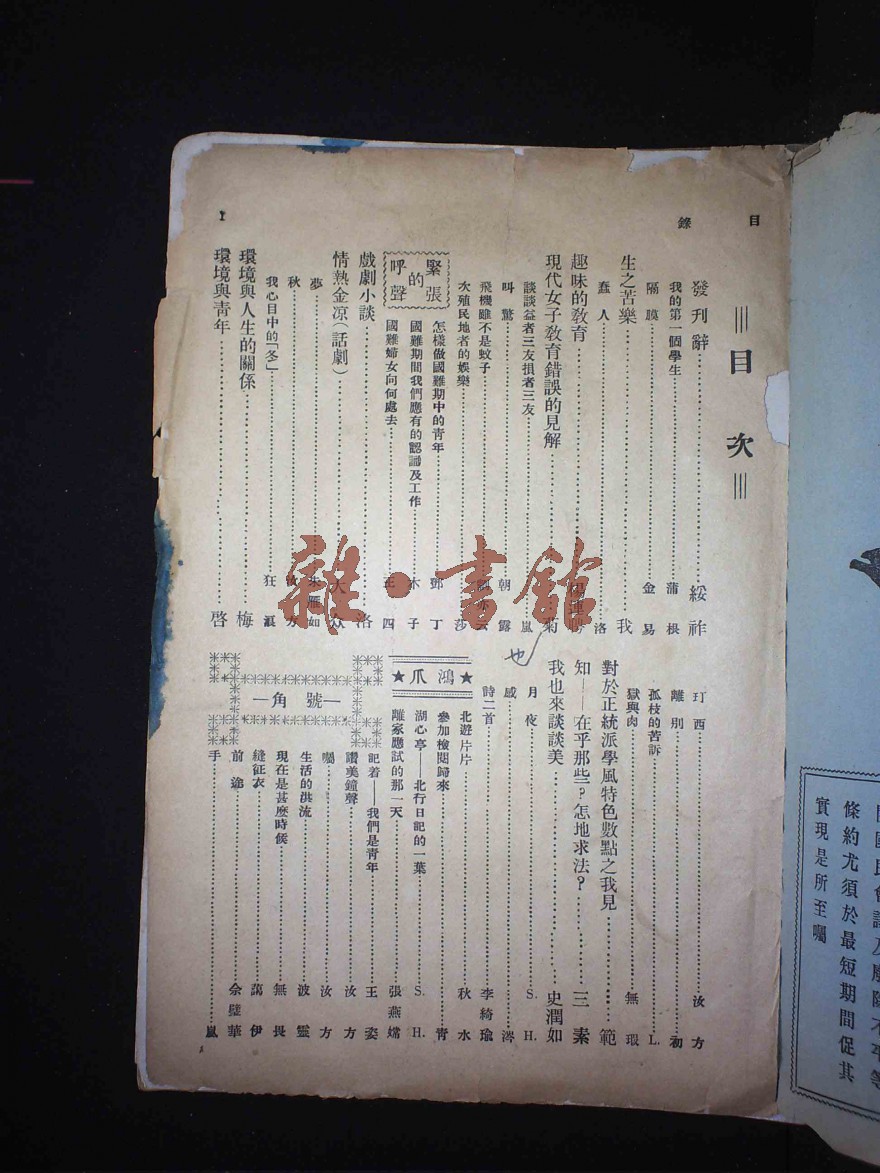 目錄
1
目次
發刊辭 綏祚
我的第一個學生 蒲根
隔膜 金易
生之苦樂 我
蠢人 洛
趣味的教育
現代女子教育錯誤的見解 菊
談談益者三友損者三友 嵐
叫驚 朝露
飛機雖不是蚊子
次殖民地者的娛樂 莎
緊張的呼聲
怎樣做國難期中的青年 鄧丁
國難期間我們應有的認識及工作 木子
國難婦女向何處去 王四
戲劇小談 洛
情熱金凉(話劇) 大众
夢 朱雁如
秋 方
我心目中的「冬」 狂
環境與人生的關係 梅
環境與青年 啓
玎西 汝方
離別 初
孤枝的苦訴 L.
獄與肉 無瑕
對於正統派學風特色數點之我見 範
知——在乎那些?怎地求法? 三素
我也來談談美 史潤如
也
月夜 S. H.
感 涔
詩二首 李綺瑜
★鴻爪★
北遊片片 秋水
參加檢閱歸來 青
湖心亭——北行日記的一葉 S. H.
離家應試的那一天 張燕孀
—號角—
記着——我們是青年 王姿
讚美鐘聲 汝方
囑 汝方
生活的洪流 波靈
現在是甚麽時候 無畏
縫征衣 藹伊
前途 余璧華
手 嵐
雜·書館
條約尤須於最短期間促其
實現是所至囑